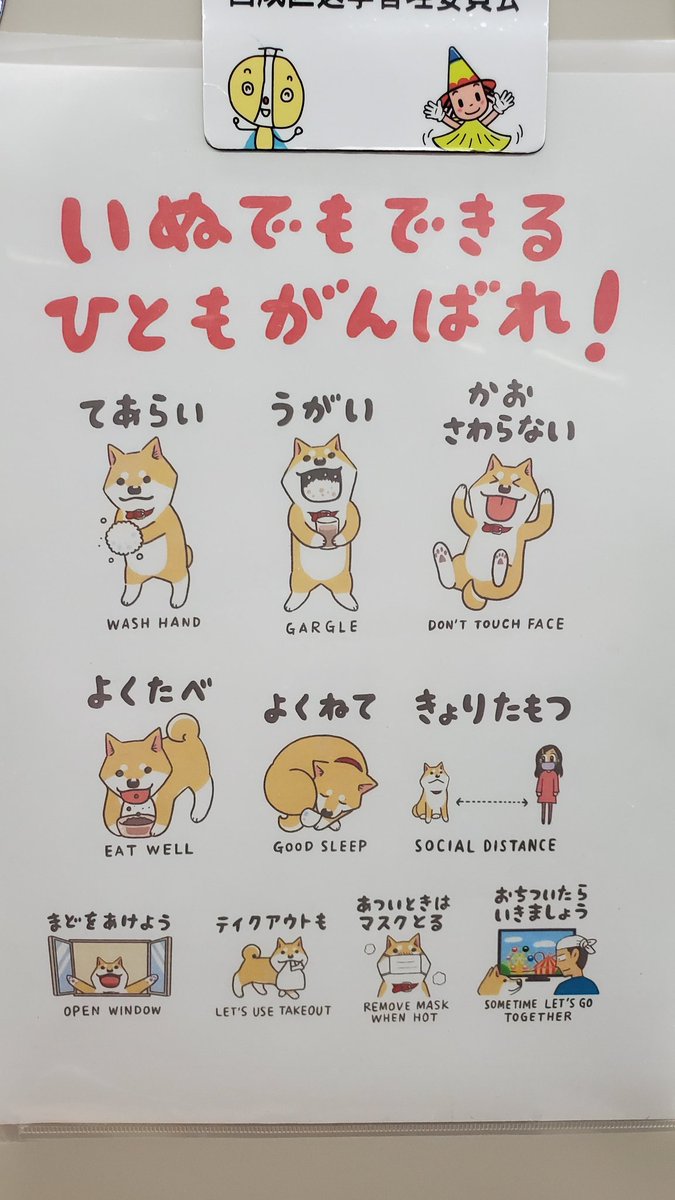 いぬでもできる
ひともがんばれ!
てあらい
WASH HAND
うがい
GARGLE
かお
さわらない
DON'T TOUCH FACE
よくたべ
EAT WELL
よくねて
GOOD SLEEP
きょりたもつ
SOCIAL DISTANCE
まどをあけよう
OPEN WINDOW
テイクアウトも
LET'S USE TAKEOUT
あついときは
マスクとる
REMOVE MASK
WHEN HOT
おちついたら
いきましょう
SOMETIME LET'S GO
TOGETHER